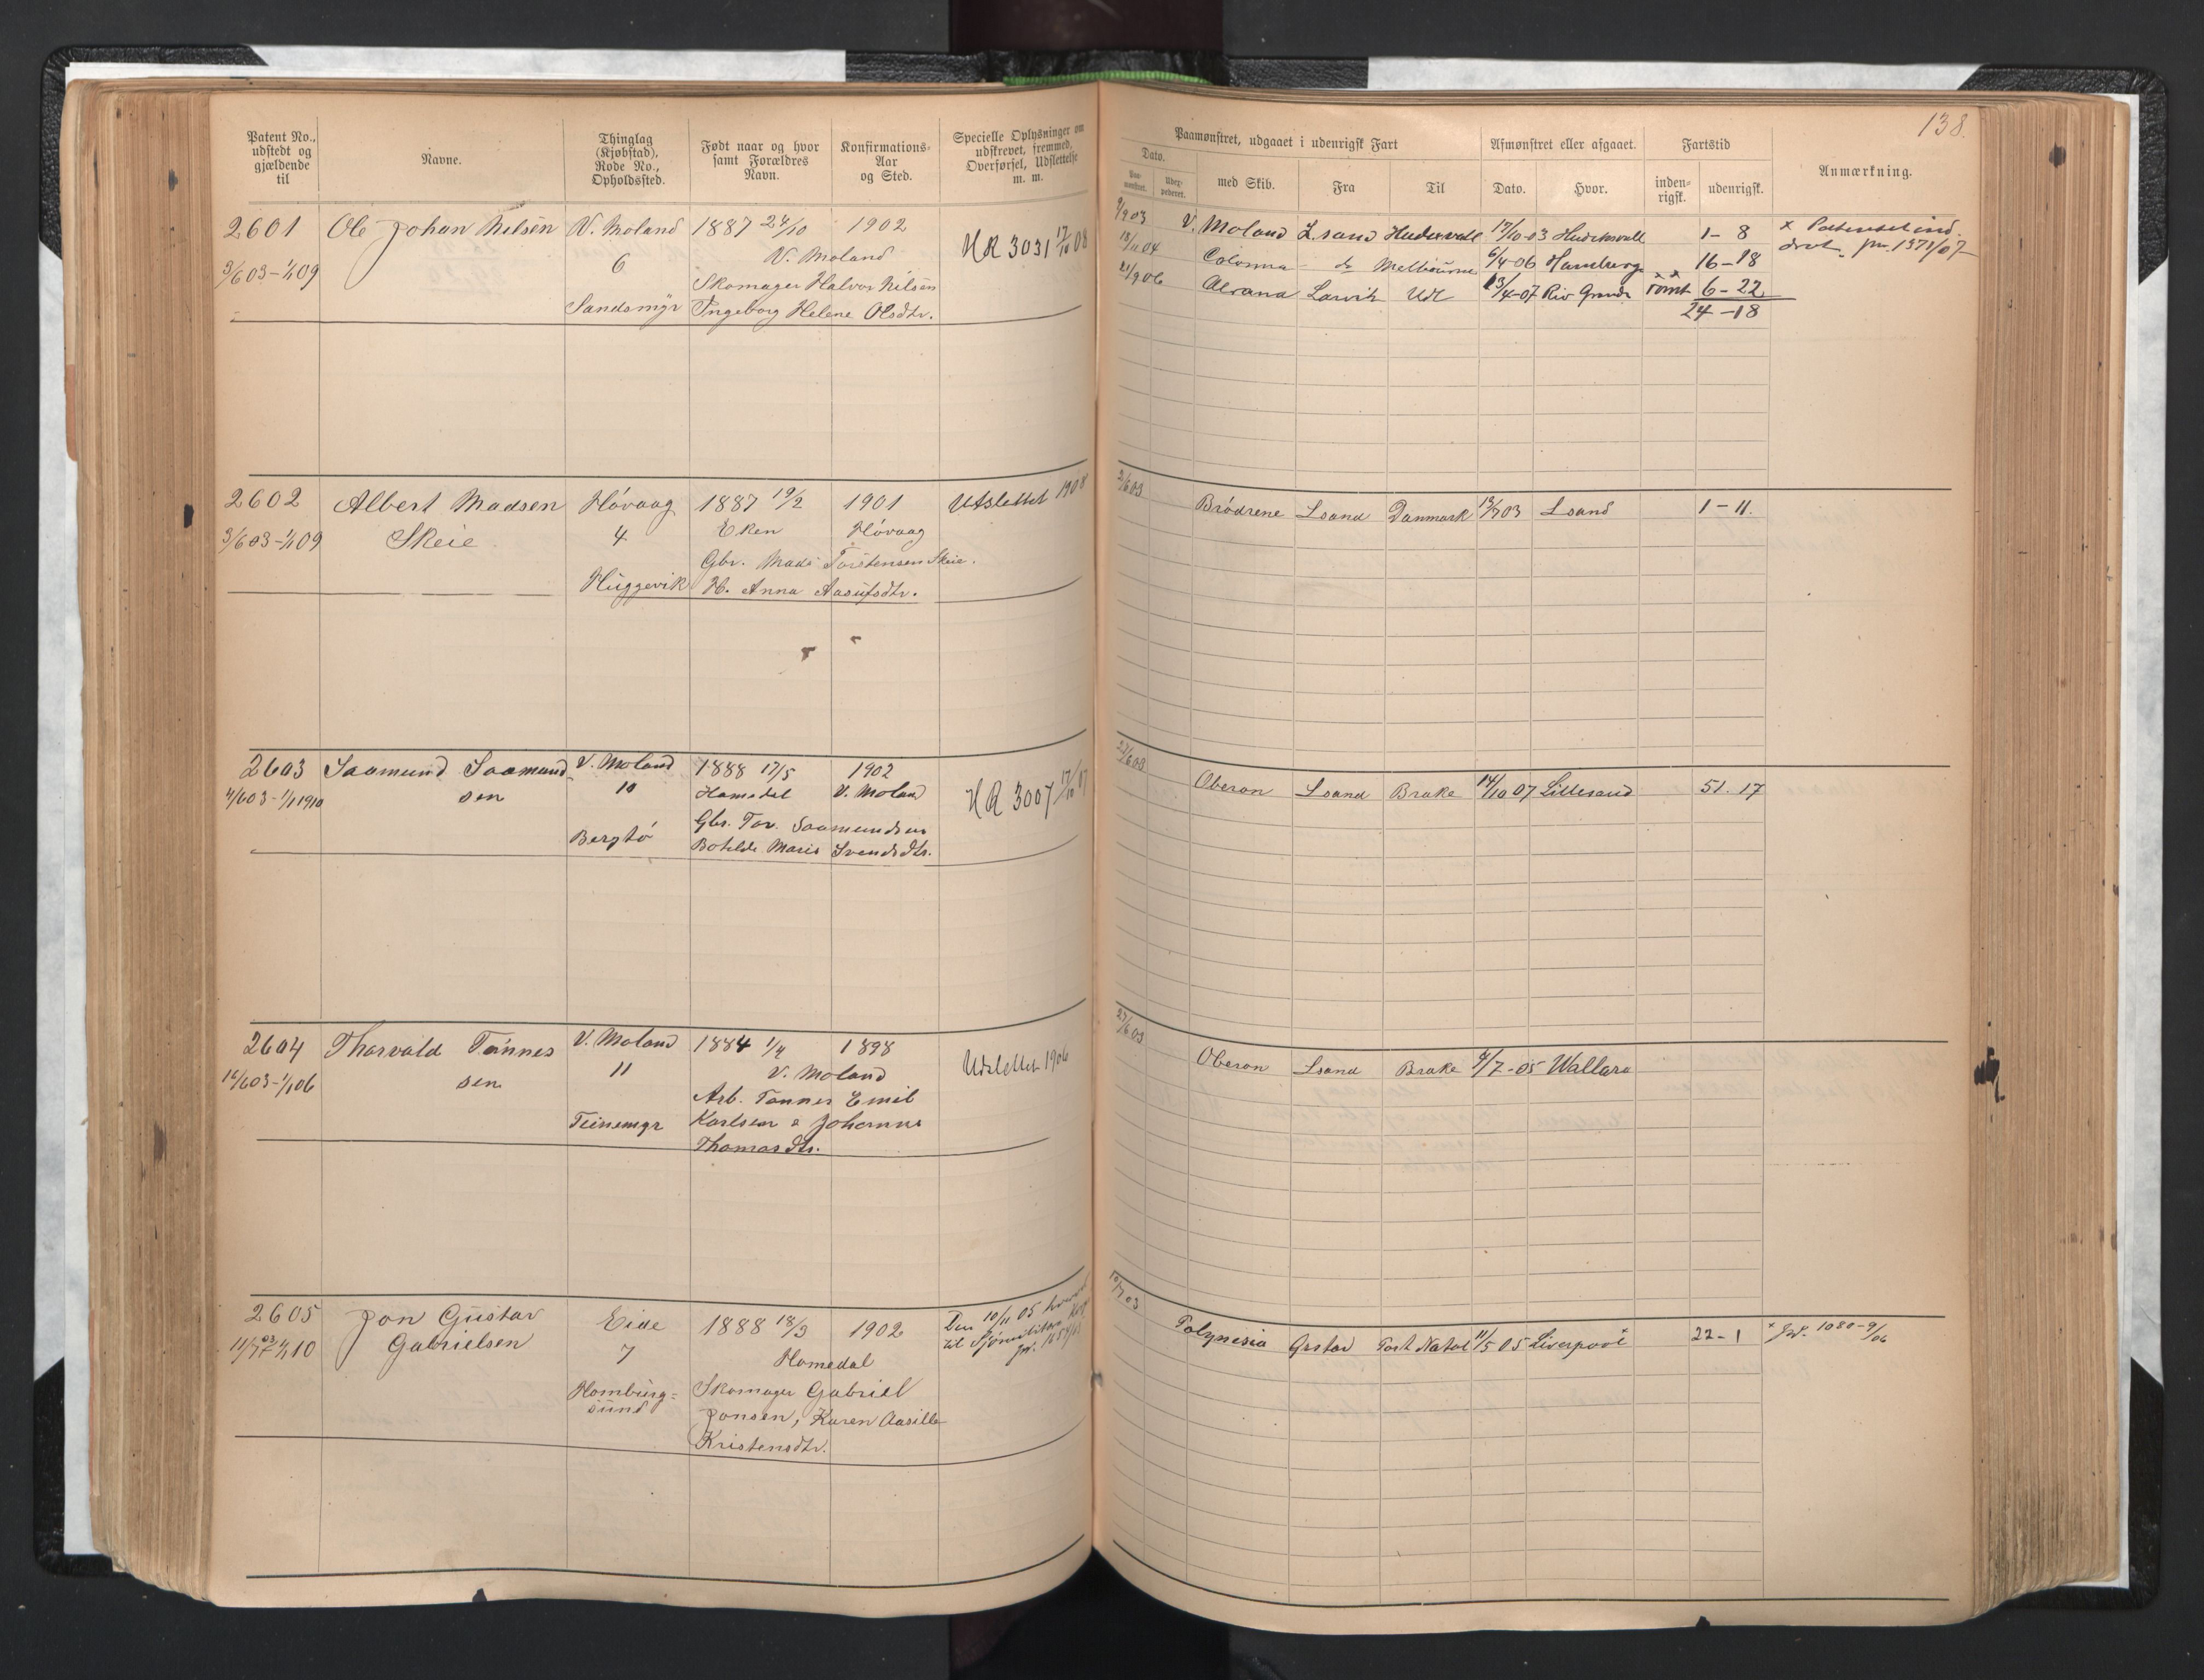 138.
Patent No., udstedt og gjældende til
Navne.
Thinglag (Kjøbstad), Rode No., Opholdssted.
Født naar og hvor samt Forældres Navn.
Konfirmations-Aar og Sted.
Specielle Oplysninger om udskrevet, fremmed, Overførsel, Udslettelse m. m.
Paamønstret, udgaaet i udenrigsk Fart
Dato.
med Skib.
Fra
Til
Afmønstret eller afgaaet.
Dato.
Hvor.
Fartstid
inden-rigsk.
udenrigsk.
Anmærkning.
2601 Ole Johan Nilsen V. Moland 1887 24/10 1902
3/6 03 - 1/1 09 6 V. Moland HR 3031 17/10 08
Skomager Halvor Nilsen
Sandsmyr Ingeborg Helene Olsdtr.
V. Moland L.sand 17/10-03 1-8 x
Colonna do Melbourne 6/4-06 Hamburg 16-18
21/9 06 Larvik Udl 13/4-07 Rio Grande rømt 6-22
24-18
2602 Albert Madsen Høvaag 1887 19/2 1901 Utslettet 1908
3/6 03 - 1/1 09 Skeie 4 Eken Høvaag
Gbr. Mads Torstensen Skeie.
Huggevik H. Anna Aasufsdtr.
Brødrene Lsand Danmark Lsand 1-11.
2603 Saamund Saamund- V. Moland 1888 17/5 1902
4/6 03 - 1/1 1910 sen 10 Homedal V. Moland HR 3007 17/10 07
Gbr. Tor. Saamundsen
Bergtø Botilde Marie Svendsdtr.
27/6 03 Oberon Lsand Brake 14/10 07 Lillesand 51. 17
2604 Thorvald Tønnes V. Moland 1884 1/4 1898
16/6 03 - 1/1 06 sen 11 V. Moland Udslettet 1906
Arb. Tønnes Emil
Teinemyr Karlsen & Johanne
Thomasdtr.
27/6 03 Oberon Lsand Brake 4/7-05 Wallaro
2605 Jon Gustav Eide 1888 18/3 1902
Gabrielsen 7 Homedal
Homburg-sund Skomager Gabriel
Jonsen, Karen Aasille
Kristensdtr.
Den 10/11 05
til
10/7 03 Polynesia Port Natal 11/5 05 Liverpool x 22-1 x Jnr. 1080-9/06